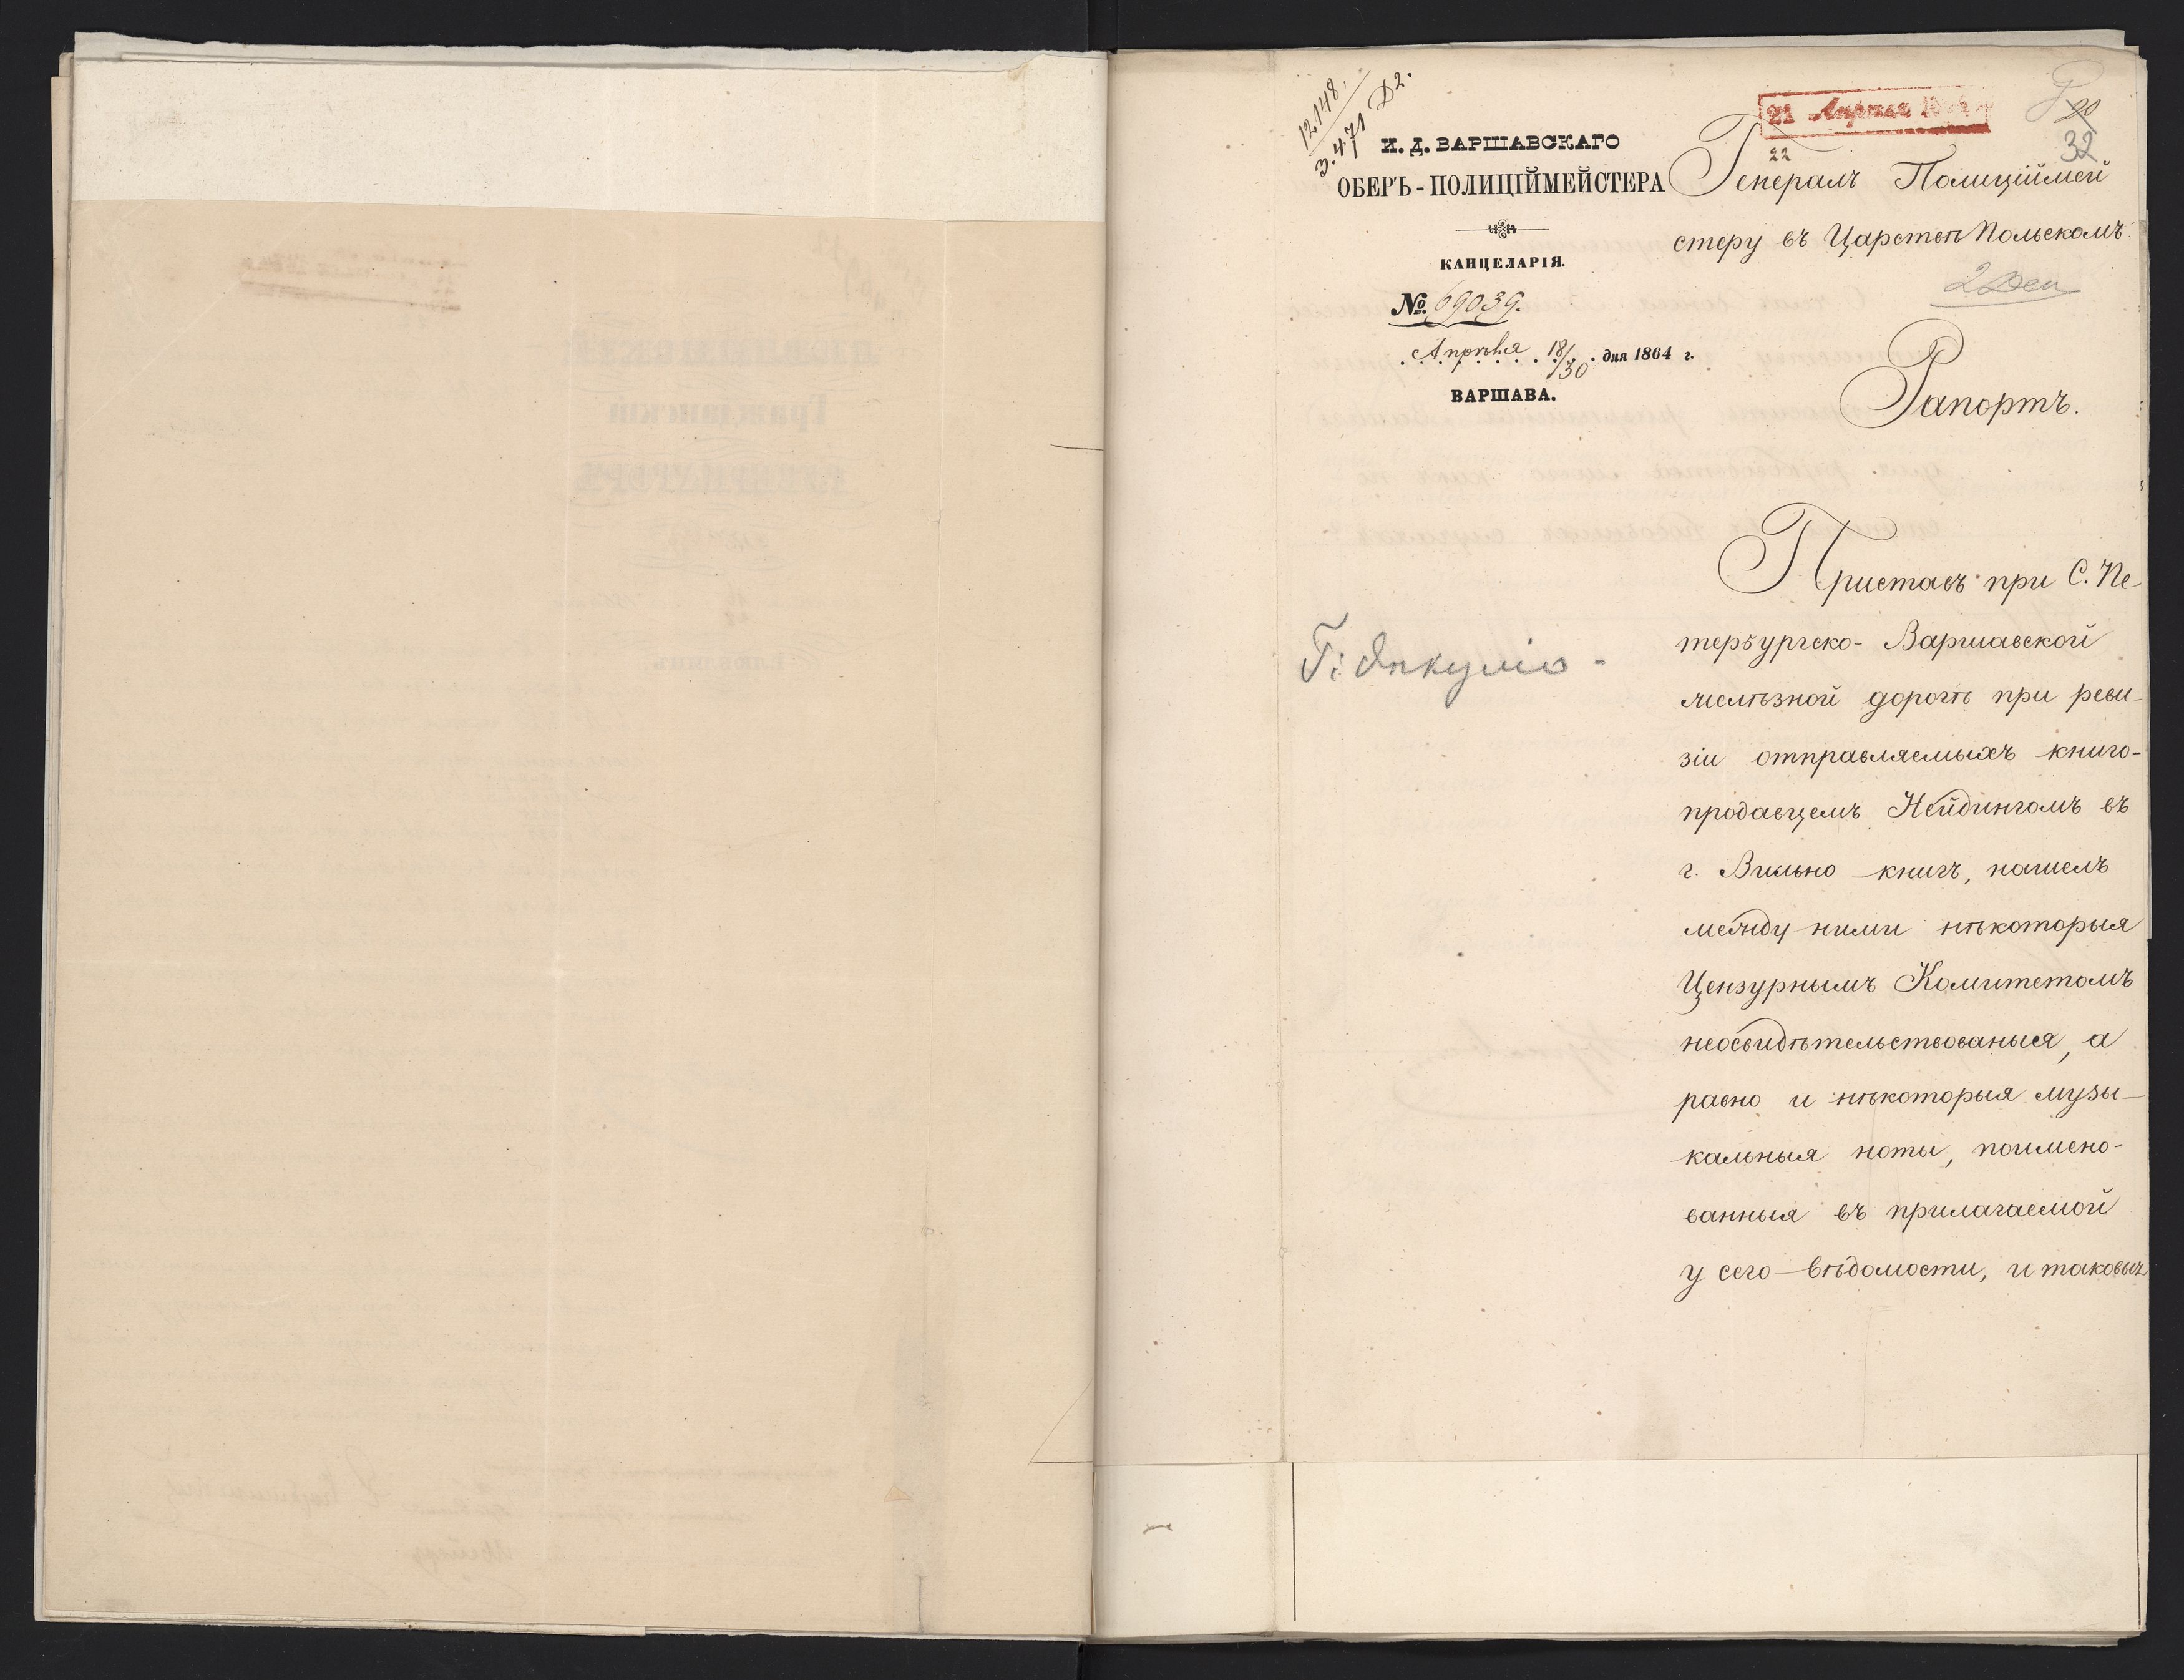 12,148.
3.471 Д2.
И. Д. ВАРШАВСКАГО
ОБЕРЪ-ПОЛИЦІЙМЕЙСТЕРА
КАНЦЕЛАРІЯ.
№ 69039.
Апрѣля 18/30 дня 1864 г.
ВАРШАВА.
21 Апреля
22
20
32
Генералъ Полиціймей
стеру въ Царствѣ Польскомъ
Рапортъ.
Приставъ при С. Пе-
тербургско-Варшавской
желѣзной дорогѣ при реви-
зіи отправляемыхъ книго-
продавцемъ Нейдингомъ въ
г. Вильно книгъ, нашелъ
между ними нѣкоторыя
Цензурнымъ Комитетомъ
неосвидѣтельствованыя, а
равно и нѣкоторыя музы-
кальныя ноты, поимено-
ванныя въ прилагаемой
у сего вѣдомости, и таковыя